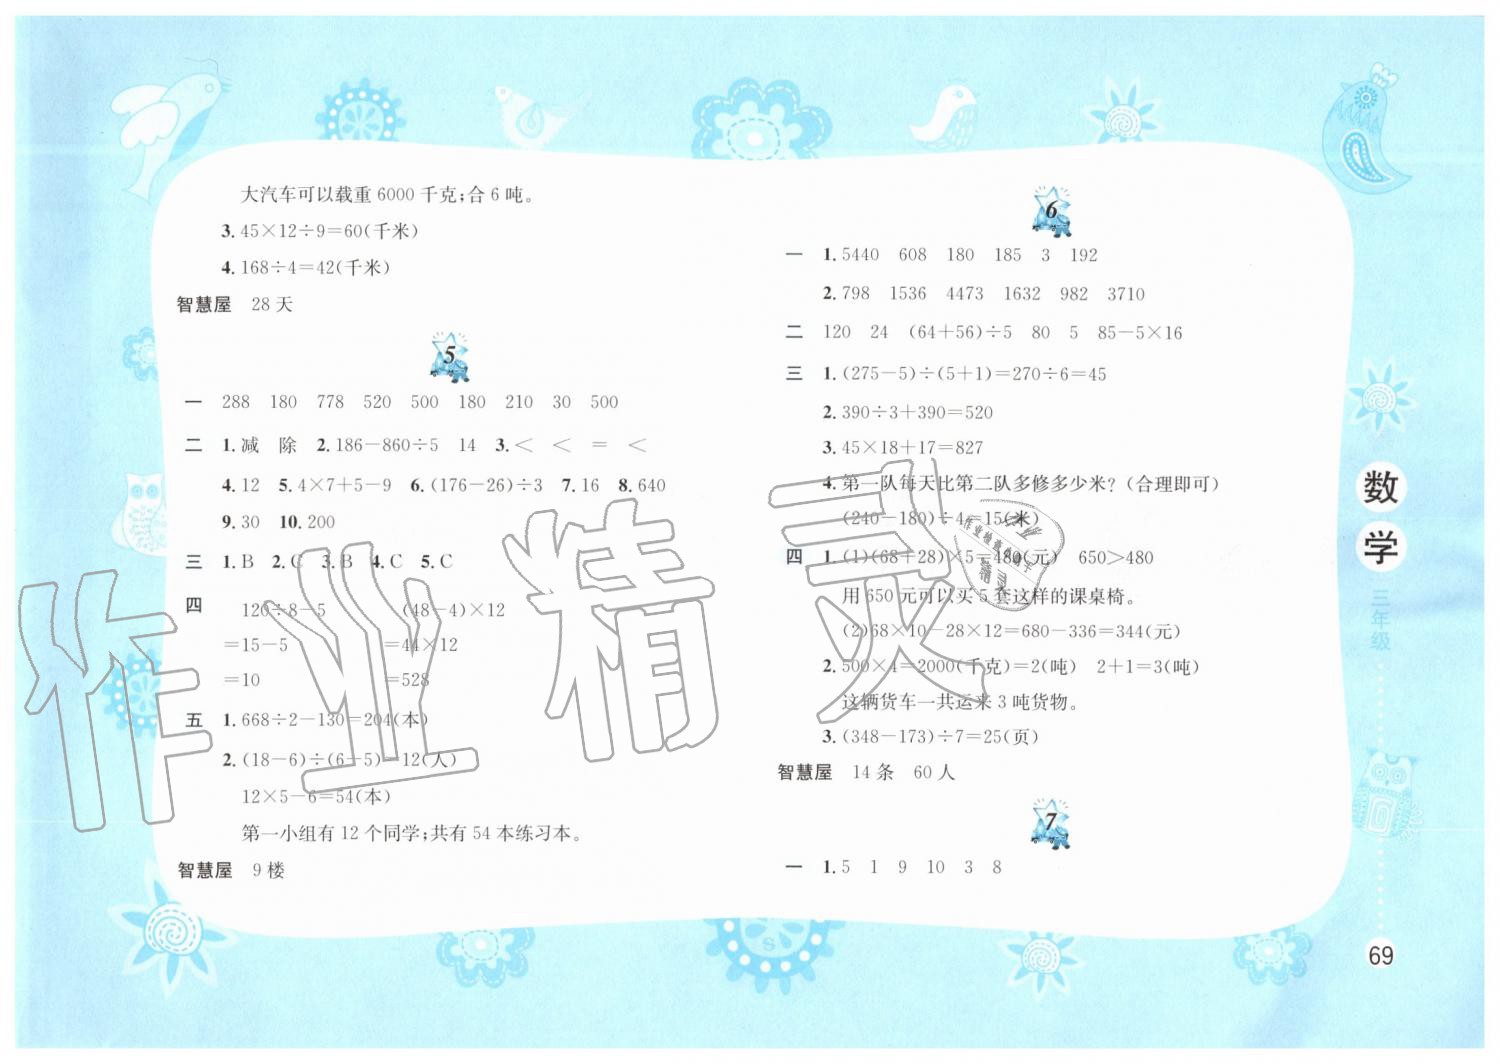 大汽车可以载重 6000 千克;合 6 吨。
3. 45×12÷9=60(千米)
4. 168÷4=42(千米)
智慧屋 28 天
5
一 288 180 778 520 500 180 210 30 500
二 1. 减 除 2. 186-860÷5 14 3. < < = <
4. 12 5. 4×7+5-9 6. (176-26)÷3 7. 16 8. 640
9. 30 10. 200
三 1. B 2. C 3. B 4. C 5. C
四 120÷8-5 (48-4)×12
=15-5 =44×12
=10 =528
五 1. 668÷2-130=204(本)
2. (18-6)÷(6-5)=12(人)
12×5-6=54(本)
第一小组有 12 个同学;共有 54 本练习本。
智慧屋 9 楼
6
一 1. 5440 608 180 185 3 192
2. 798 1536 4473 1632 982 3710
二 120 24 (64+56)÷5 80 5 85-5×16
三 1. (275-5)÷(5+1)=270÷6=45
2. 390÷3+390=520
3. 45×18+17=827
4. 第一队每天比第二队多修多少米?(合理即可)
(240-180)÷4=15(米)
四 1. (1)(68+28)×5=480(元) 650>480
用 650 元可以买 5 套这样的课桌椅。
(2)68×10-28×12=680-336=344(元)
2. 500×4=2000(千克)=2(吨) 2+1=3(吨)
这辆货车一共运来 3 吨货物。
3. (348-173)÷7=25(页)
智慧屋 14 条 60 人
7
一 1. 5 1 9 10 3 8
数学
三年级
69
作业精灵